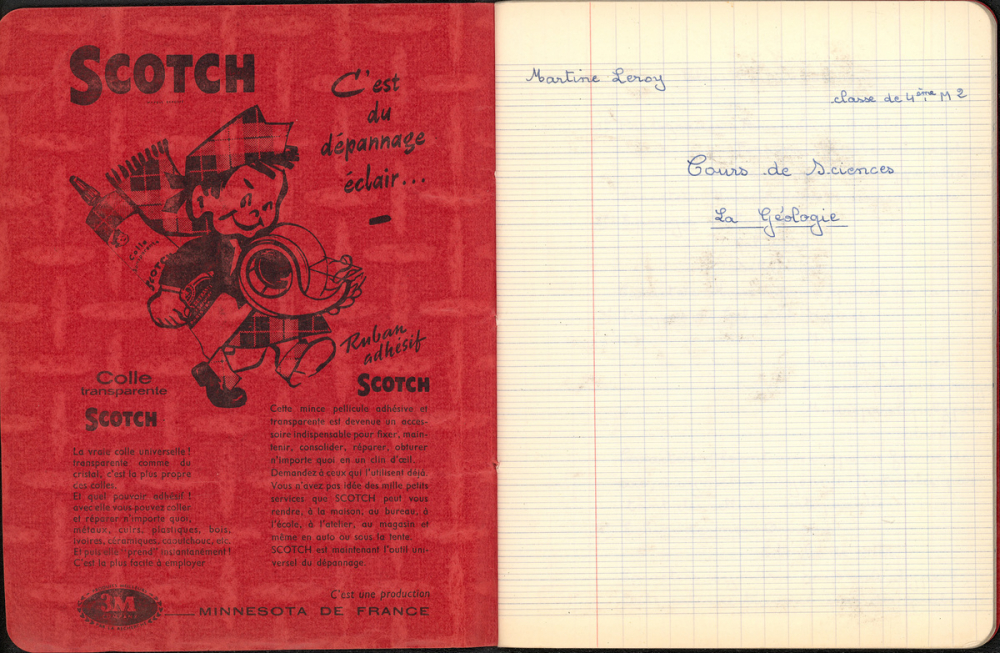 SCOTCH
C'est
du
dépannage
éclair...
Colle
SCOTCH
Ruban
adhésif
SCOTCH
Colle
transparente
SCOTCH
La vraie colle universelle !
transparente comme du
cristal, c'est la plus propre
des colles.
Et quel pouvoir adhésif !
avec elle vous pouvez coller
et réparer n'importe quoi,
métaux, cuirs, plastiques, bois,
ivoires, céramiques, caoutchouc, etc.
Et puis elle "prend" instantanément !
C'est la plus facile à employer
Cette mince pellicule adhésive et
transparente est devenue un acces-
soire indispensable pour fixer, main-
tenir, consolider, réparer, obturer
n'importe quoi en un clin d'œil...
Demandez à ceux qui l'utilisent déjà.
Vous n'avez pas idée des mille petits
services que SCOTCH peut vous
rendre, à la maison, au bureau, à
l'école, à l'atelier, au magasin et
même en auto ou sous la tente.
SCOTCH est maintenant l'outil uni-
versel du dépannage.
C'est une production
3M
MINNESOTA DE FRANCE
Martine Leroy
classe de 4ème M 2
Cours de Sciences
La Géologie